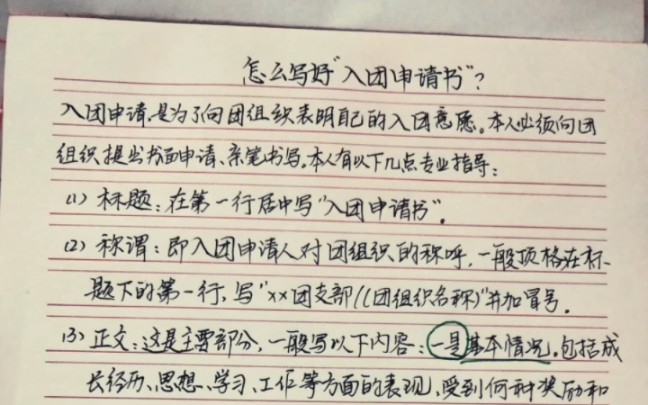 怎么写好"入团申请书"?
入团申请,是为了向团组织表明自己的入团意愿。本人必须向团
组织提出书面申请、亲笔书写。本人有以下几点专业指导:
(1) 标题:在第一行居中写"入团申请书"。
(2) 称谓:即入团申请人对团组织的称呼,一般顶格在标
题下的第一行,写"××团支部((团组织名称)"并加冒号。
(3) 正文:这是主要部分,一般写以下内容:一是基本情况。包括成
长经历、思想、学习、工作等方面的表现、受到何种奖励和